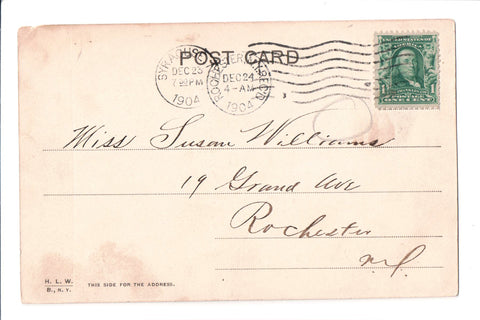 POST CARD
SYRACUS
DEC 23
1904
ROCHESTER
DEC 24
4-AM
1904
REC'D
ONE CENT
Miss Susan Williams
19 Grand Ave
Rochester
N.Y.
H. L. W.
B., N. Y.
THIS SIDE FOR THE ADDRESS.